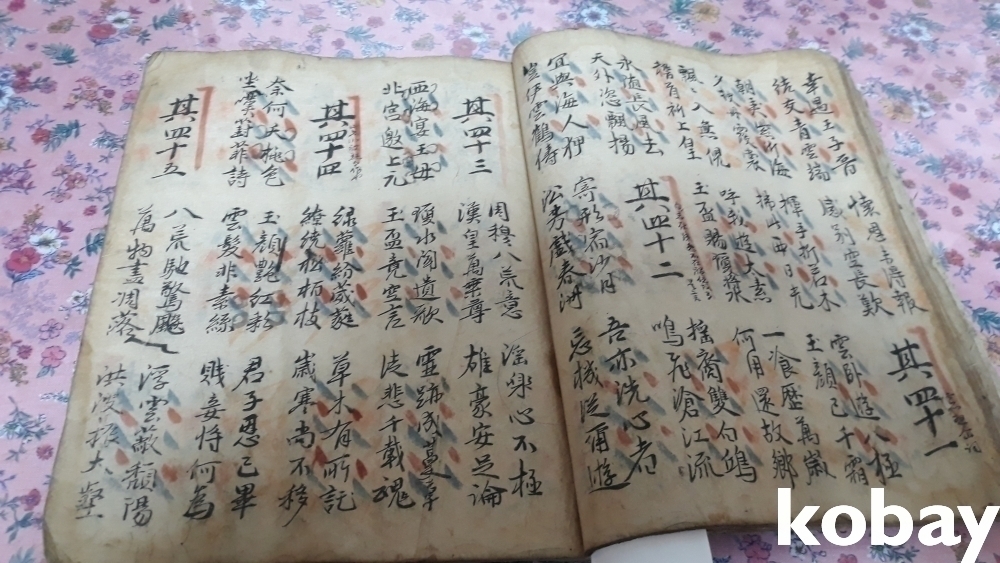 幸遇王子晉
結交青雲端
懷恩未得報
感別空長歎
其四十一
朝弄紫沂海
夕披丹霞裳
揮手折若木
拂此西日光
雲卧遊八極
玉顔已千霜
飄飄入無倪
稽首祈上皇
呼我遊太素
玉盃賜瓊漿
一飡歷萬歲
何用還故鄉
永随長風去
天外恣飄揚
其四十二
搖裔雙白鴎
鳴飛滄江流
宜與海人狎
豈伊雲鶴儔
寄形宿沙月
沿芳戲春洲
吾亦洗心者
忘機從爾遊
其四十三
周穆八荒意
漢皇萬乗尊
淫樂心不極
雄豪安足論
西海宴王母
北宮邀上元
瑶水聞遺歌
玉盃竟空言
靈跡成蔓草
徒悲千載魂
其四十四
緑蘿紛葳蕤
繞繞松柏枝
草木有所託
歲寒尚不移
奈何夭桃色
坐歎葑菲詩
玉顔艶紅彩
雲髮非素絲
君子恩已畢
賤妾将何為
其四十五
八荒馳驚飈
萬物盡凋落
浮雲蔽頹陽
洪波振大壑
kobay